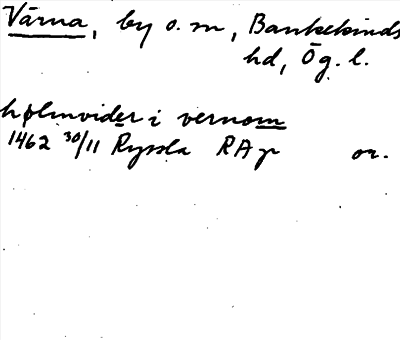 Värna, by o. m, Bankekinds
hd, Ög. l.
holmvider i vernom
1462 30/11 Ryssla RAp or.